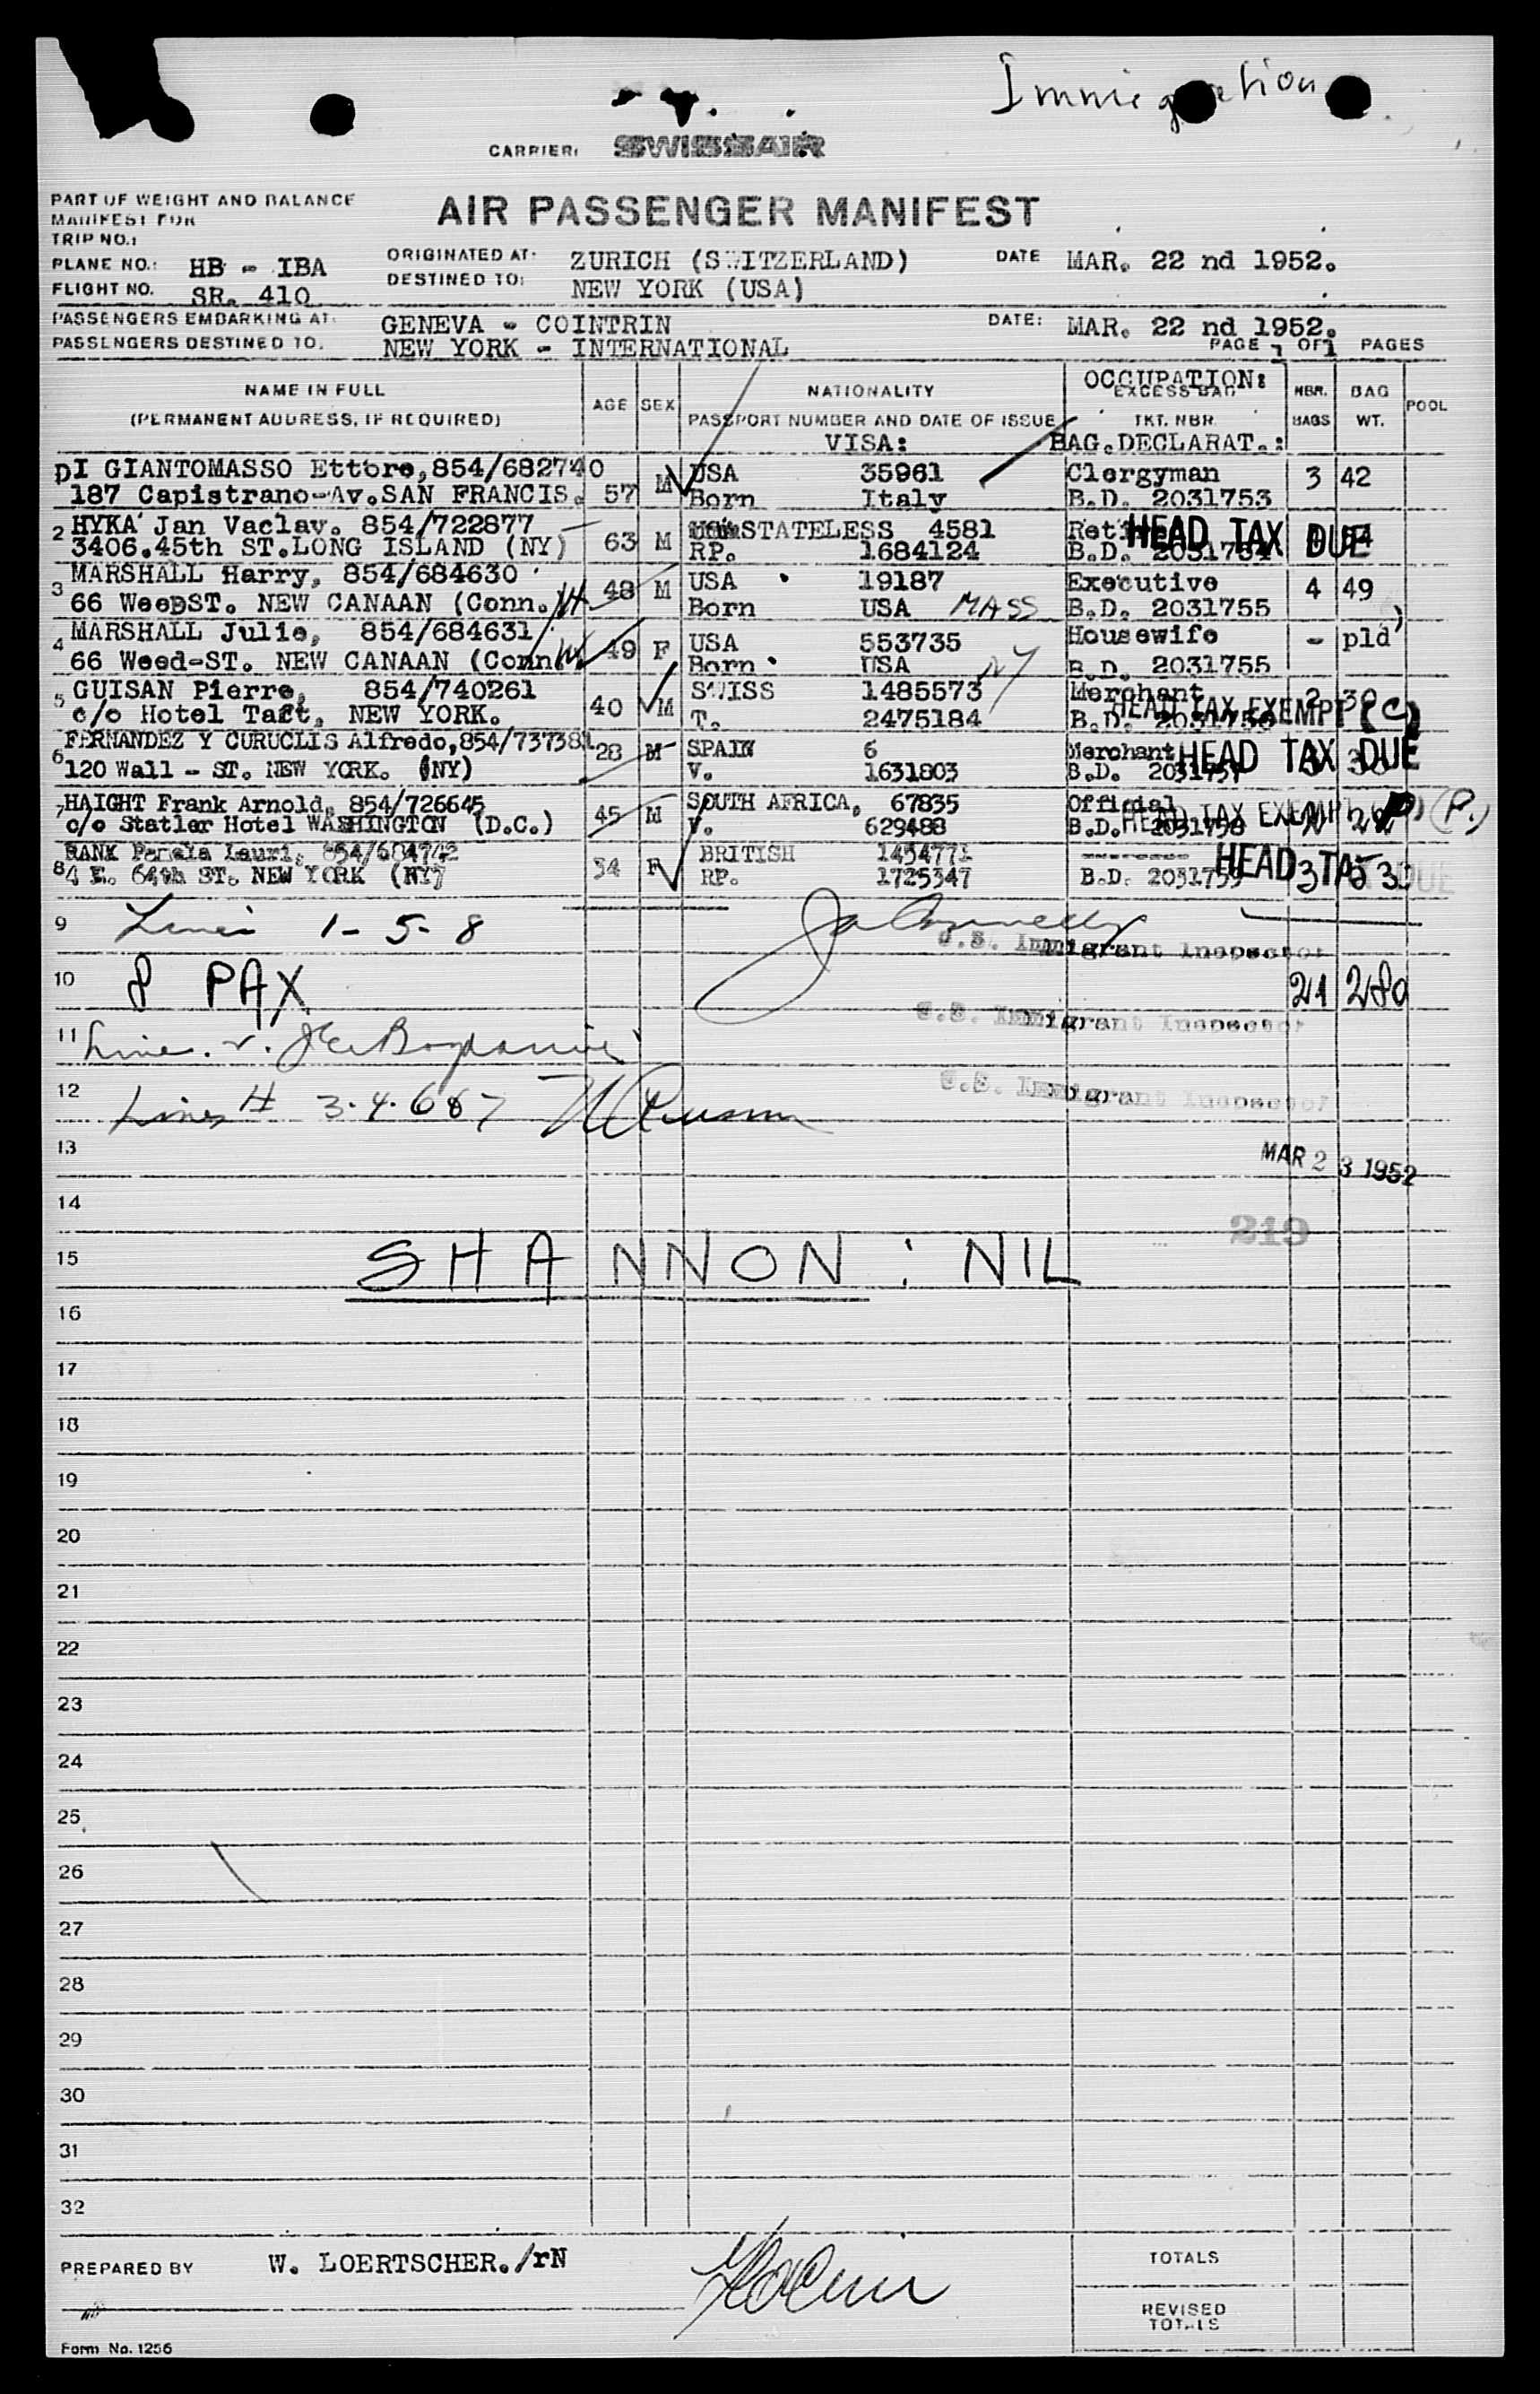 Immigration
CARRIER: SWISSAIR
PART OF WEIGHT AND BALANCE
MANIFEST FOR
AIR PASSENGER MANIFEST
TRIP NO.:
PLANE NO.: HB - IBA ORIGINATED AT: ZURICH (SWITZERLAND) DATE MAR. 22 nd 1952.
FLIGHT NO. SR. 410 DESTINED TO: NEW YORK (USA)
PASSENGERS EMBARKING AT: GENEVA - COINTRIN DATE: MAR. 22 nd 1952.
PASSENGERS DESTINED TO. NEW YORK - INTERNATIONAL PAGE 1 OF 1 PAGES
NAME IN FULL AGE SEX NATIONALITY OCCUPATION: EXCESS BAG NBR. BAG POOL
(PERMANENT ADDRESS, IF REQUIRED) PASSPORT NUMBER AND DATE OF ISSUE TKT. NBR. BAGS WT.
VISA: BAG.DECLARAT.:
DI GIANTOMASSO Ettore,854/682740 57 M USA 35961 Clergyman 3 42
187 Capistrano-Av.SAN FRANCIS. Born Italy B.D. 2031753
2 HYKA Jan Vaclav. 854/722877 63 M STATELESS 4581 HEAD TAX DUE
3406.45th ST.LONG ISLAND (NY) RP. 1684124 B.D. 2031754
3 MARSHALL Harry, 854/684630 48 M USA 19187 Executive 4 49
66 WeedST. NEW CANAAN (Conn. Born USA MASS B.D. 2031755
4 MARSHALL Julie, 854/684631 49 F USA 553735 Housewife - pld
66 Weed-ST. NEW CANAAN (Conn. Born USA NY B.D. 2031755
5 GUISAN Pierre, 854/740261 40 M SWISS 1485573 Merchant 2 30
c/o Hotel Taft, NEW YORK. T. 2475184 B.D. 2031756 HEAD TAX EXEMPT (C)
6 FERNANDEZ Y CURUCLIS Alfredo,854/737381 28 M SPAIN 6 Merchant HEAD TAX DUE
120 Wall - ST. NEW YORK. (NY) V. 1631803 B.D. 2031757
7 HAIGHT Frank Arnold, 854/726645 45 M SOUTH AFRICA, 67835 Official
c/o Statler Hotel WASHINGTON (D.C.) V. 629488 B.D. 2031758 HEAD TAX EXEMPT (P.)
RANK Pamela Lauri, 854/684742 34 F BRITISH 1454771 HEAD TAX DUE
8 4 E. 64th ST. NEW YORK (NY) RP. 1725347 B.D. 2031759 3
9 Lines 1-5-8
U.S. Immigrant Inspector
10 8 PAX 21 280
U.S. Immigrant Inspector
11 Line
U.S. Immigrant Inspector
12 Lines # 3.4.6 & 7
13 MAR 23 1952
14
219
15 SHANNON : NIL
16
17
18
19
20
21
22
23
24
25
26
27
28
29
30
31
32
PREPARED BY W. LOERTSCHER./rN TOTALS
REVISED
TOTALS
Form No. 1256